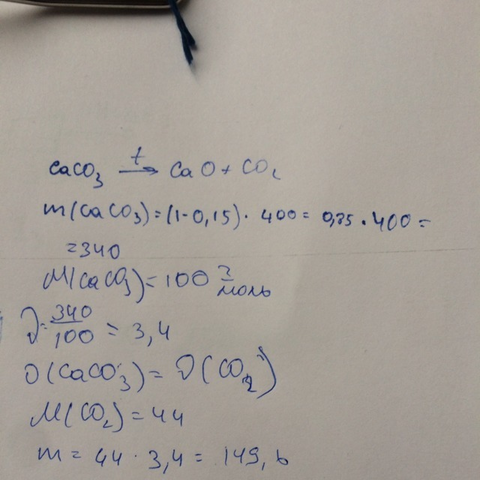 CaCO₃ →t CaO + CO₂
m(CaCO₃) = (1-0,15) · 400 = 0,85 · 400 =
= 340
M(CaCO₃) = 100 г/моль
ν = 340/100 = 3,4
ν(CaCO₃) = ν(CO₂)
M(CO₂) = 44
m = 44 · 3,4 = 149,6